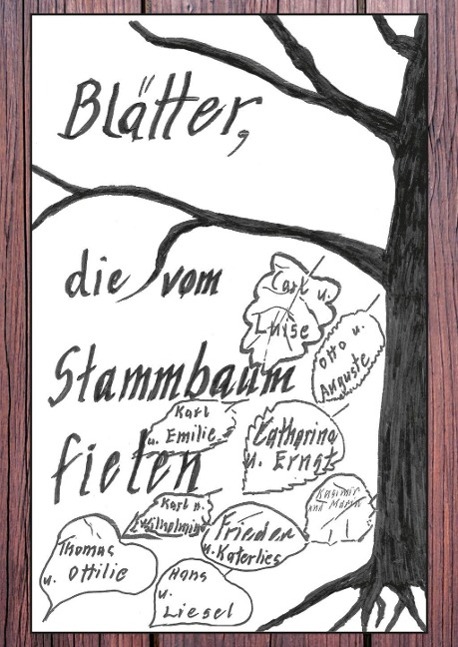 Blätter,
die vom
Carl u.
Luise
Otto u.
Auguste
Stammbaum
Karl
u. Emilie
Catharina
u. Ernst
fielen
Karl u.
Wilhelmine
Kasimir
und Maria
Frieder
u. Katerlies
Thomas
u. Ottilie
Hans
u.
Liesel